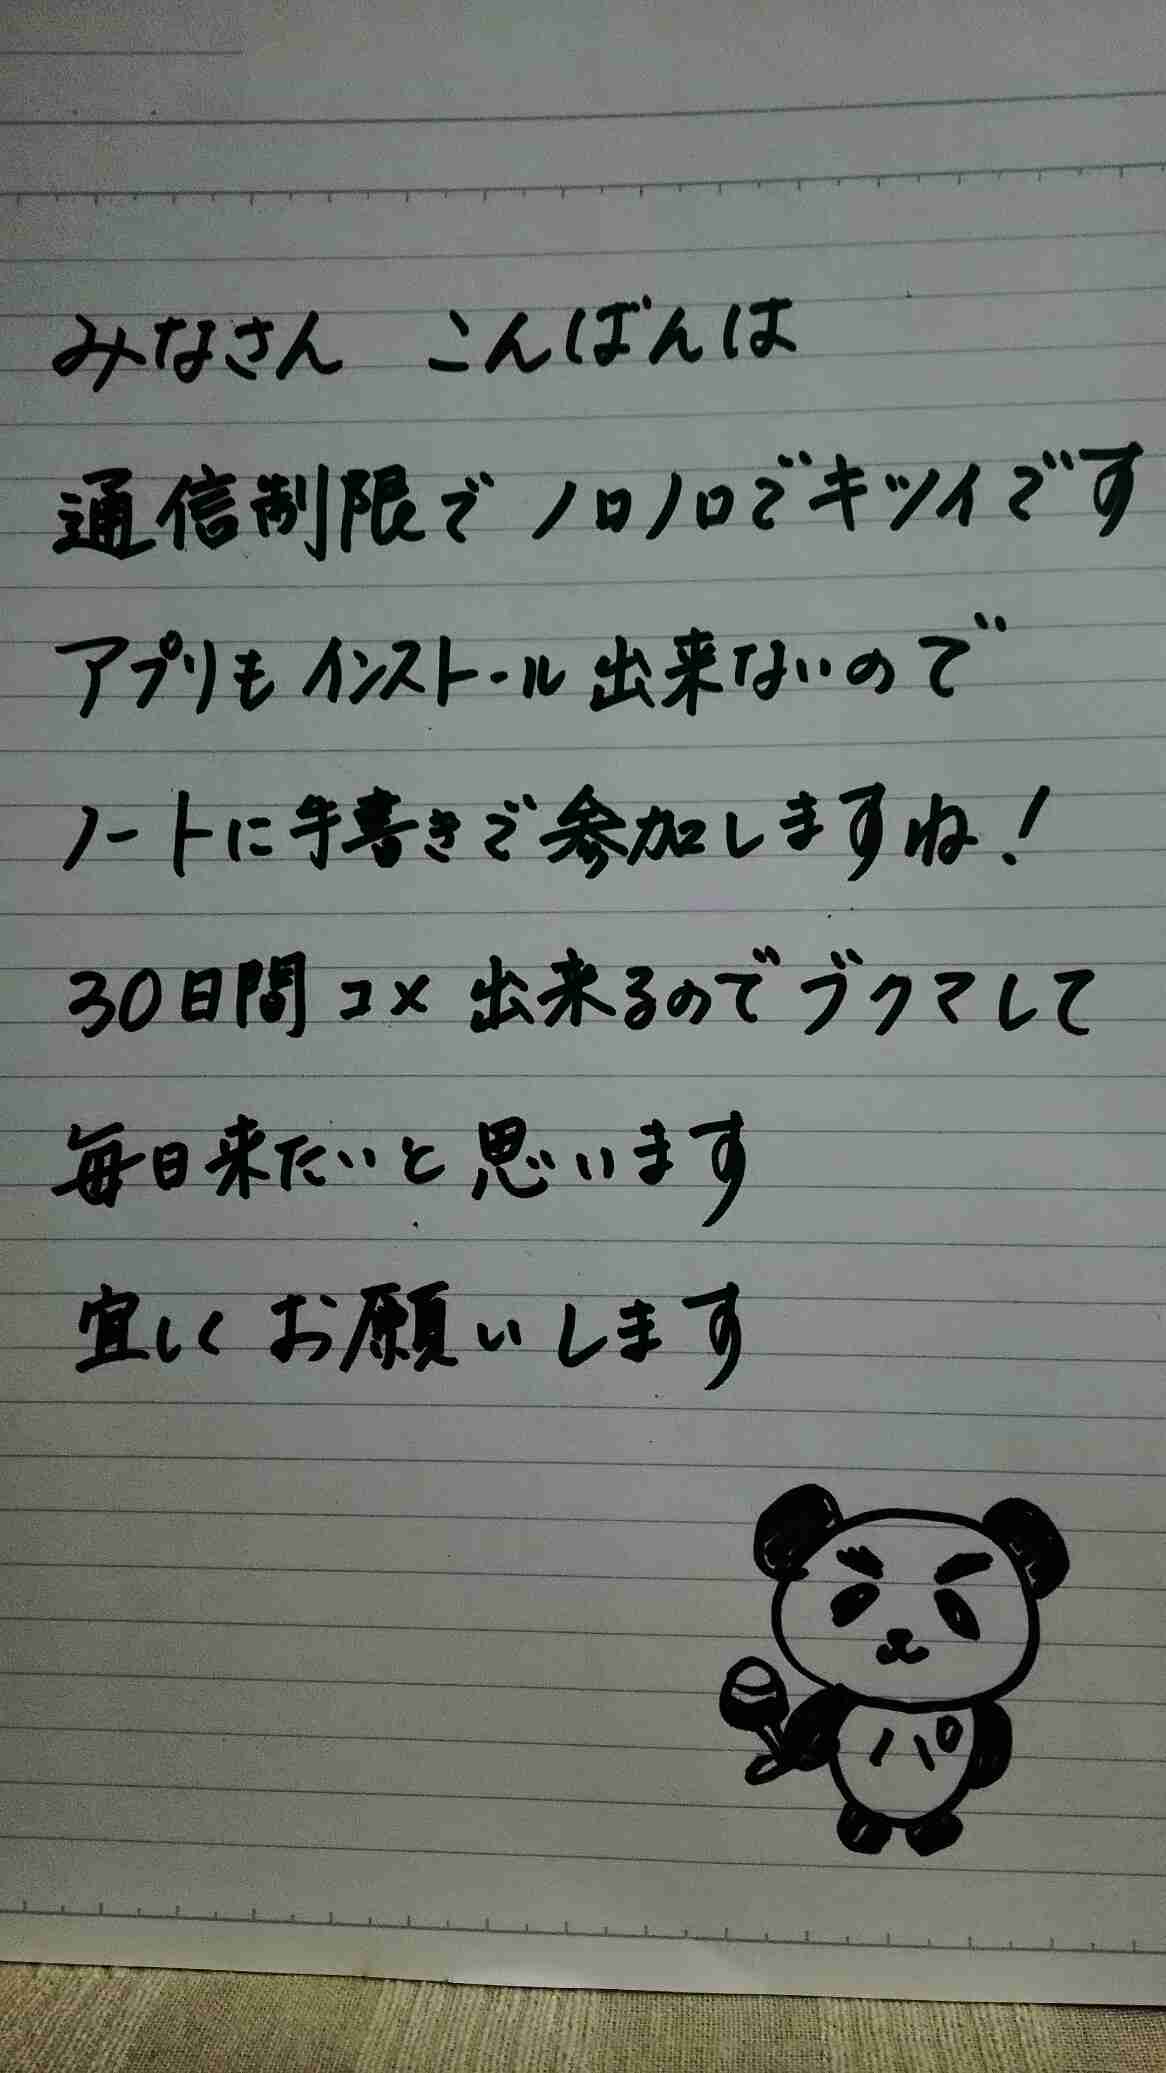 みなさん　こんばんは
通信制限で ノロノロでキツイです
アプリも インストール 出来ないので
ノートに手書きで参加しますね！
30日間 コメ 出来るのでブクマして
毎日来たいと思います
宜しく お願いします
パ